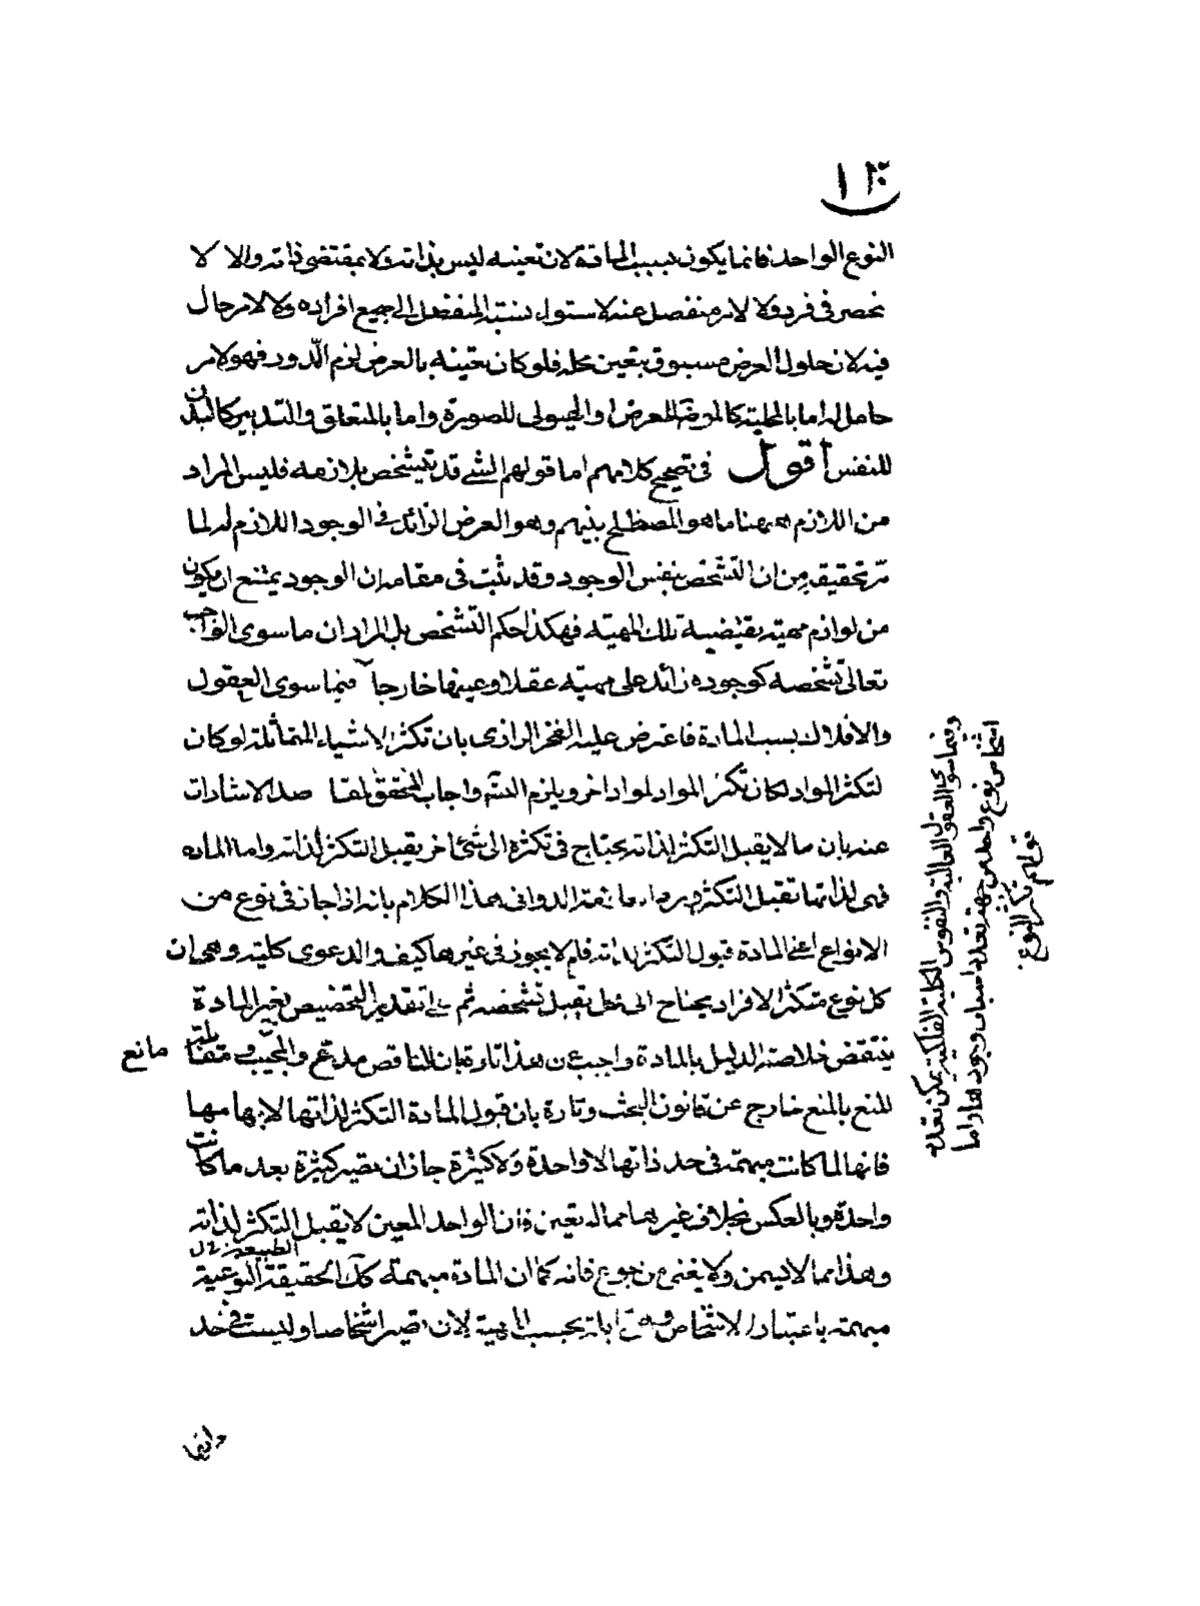 النوع الواحد فانما يكون بسبب المادة لان تعينه ليس بذاته ولا بمقتضى ذاته والا لا
نحصر فى فرد ولا لامر منفصل عنه لاستواء نسبة المنفصل الى جميع افراده ولا لامر حال
فيه لان حلول العرض مسبوق بتعين محله فلو كان تعينه بالعرض لزم الدور فهو لامر
حامل له اما بالمحلية كالموضوع للعرض او الهيولى للصورة واما بالمتعلق والتدبير كالبدن
للنفس اقول فى تصحيح كلامهم اما قولهم الشئ قد يتشخص بلازمه فليس المراد
من اللازم ههنا ما هو المصطلح بينهم وهو العرض الزائد فى الوجود اللازم له لما
مر تحقيقه من ان التشخص بنفس الوجود وقد ثبت فى مقامه ان الوجود يمتنع ان يكون
من لوازم مهيته يقتضيه تلك المهية فهكذا حكم التشخص بل المراد ان ما سوى الواجب
تعالى تشخصه كوجوده زائد على مهيته عقلا وعينها خارجا فيما سوى العقول
والافلاك بسبب المادة فاعترض عليه الفخر الرازى بان تكثر الاشياء المتماثلة لو كان
لتكثر المواد لكان تكثر المواد لمواد اخر ويلزم التسلسل واجاب المحقق لمقاصد الاشارات
عنه بان ما لا يقبل التكثر لذاته يحتاج فى تكثره الى شئ اخر يقبل التكثر لذاته واما الماده
فهى لذاتها تقبل التكثر العلامة الدوانى هذا الكلام بانه اذا جاز فى نوع من
الانواع اعنى المادة قبول التكثر لذاته فلم لا يجوز فى غيرها كيف والدعوى كلية وهى ان
كل نوع متكثر الافراد يحتاج الى محل يقبل تشخصه ثم على تقدير التخصيص بغير المادة
ينتقض خلاصة الدليل بالمادة واجيب عن هذا تارة بان الناقص مدع والمجيب فى مقابلته مانع
المنع بالمنع خارج عن قانون البحث وتارة بان قبول المادة التكثر لذاتها لابهامها
فانها لما كانت مبهمة فى حد ذاتها لا واحدة ولا كثيرة جاز ان تصير كثيرة بعد ما كانت
واحدة وبالعكس بخلاف غيرها مما له تعين فان الواحد المعين لا يقبل التكثر لذاته
وهذا مما لا يسمن ولا يغنى من جوع فانه كما ان المادة مبهمة كذلك الحقيقة النوعية
الطبيعة ل
مبهمة باعتبار الاشخاص وهى قابلة بحسب المهية لان تصير اشخاصا وليست فى حد
وفيما سوى العقول العالية والنفوس الكلية الفلكية يمكن تعدد
اشخاص نوع واحد من جهة تعدد اسباب وجودها واما
قولهم تكثر النوع